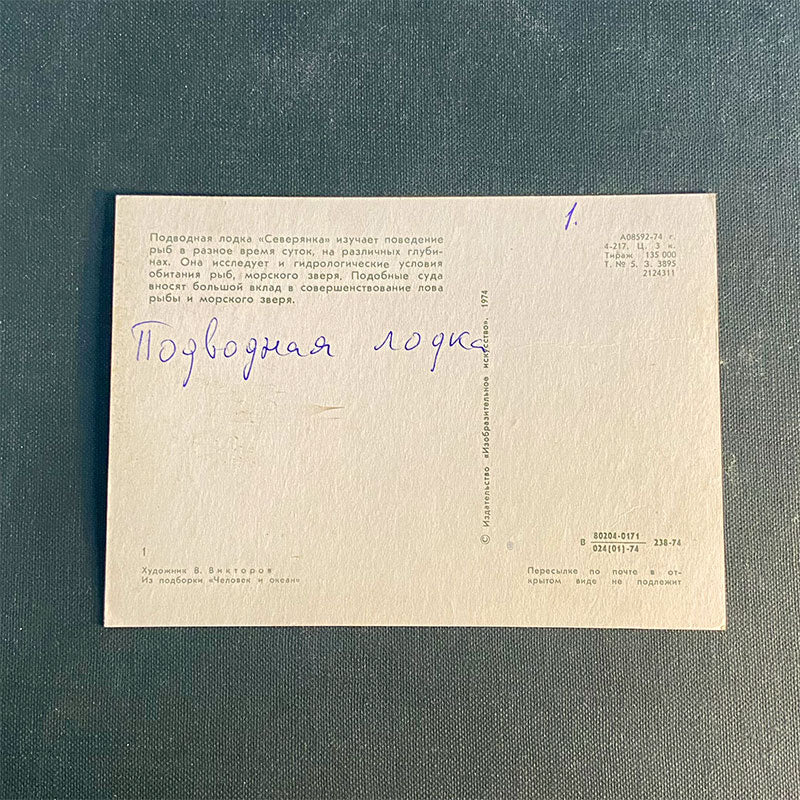 Подводная лодка «Северянка» изучает поведение
рыб в разное время суток, на различных глуби-
нах. Она исследует и гидрологические условия
обитания рыб, морского зверя. Подобные суда
вносят большой вклад в совершенствование лова
рыбы и морского зверя.
1.
А08592-74 г.
4-217. Ц. 3 к.
Тираж 135 000
Т. № 5. З. 3895
2124311
Подводная лодка
© Издательство «Изобразительное искусство». 1974
1
Художник В. Викторов
Из подборки «Человек и океан»
В 80204-0171 238-74
024(01)-74
Пересылке по почте в от-
крытом виде не подлежит